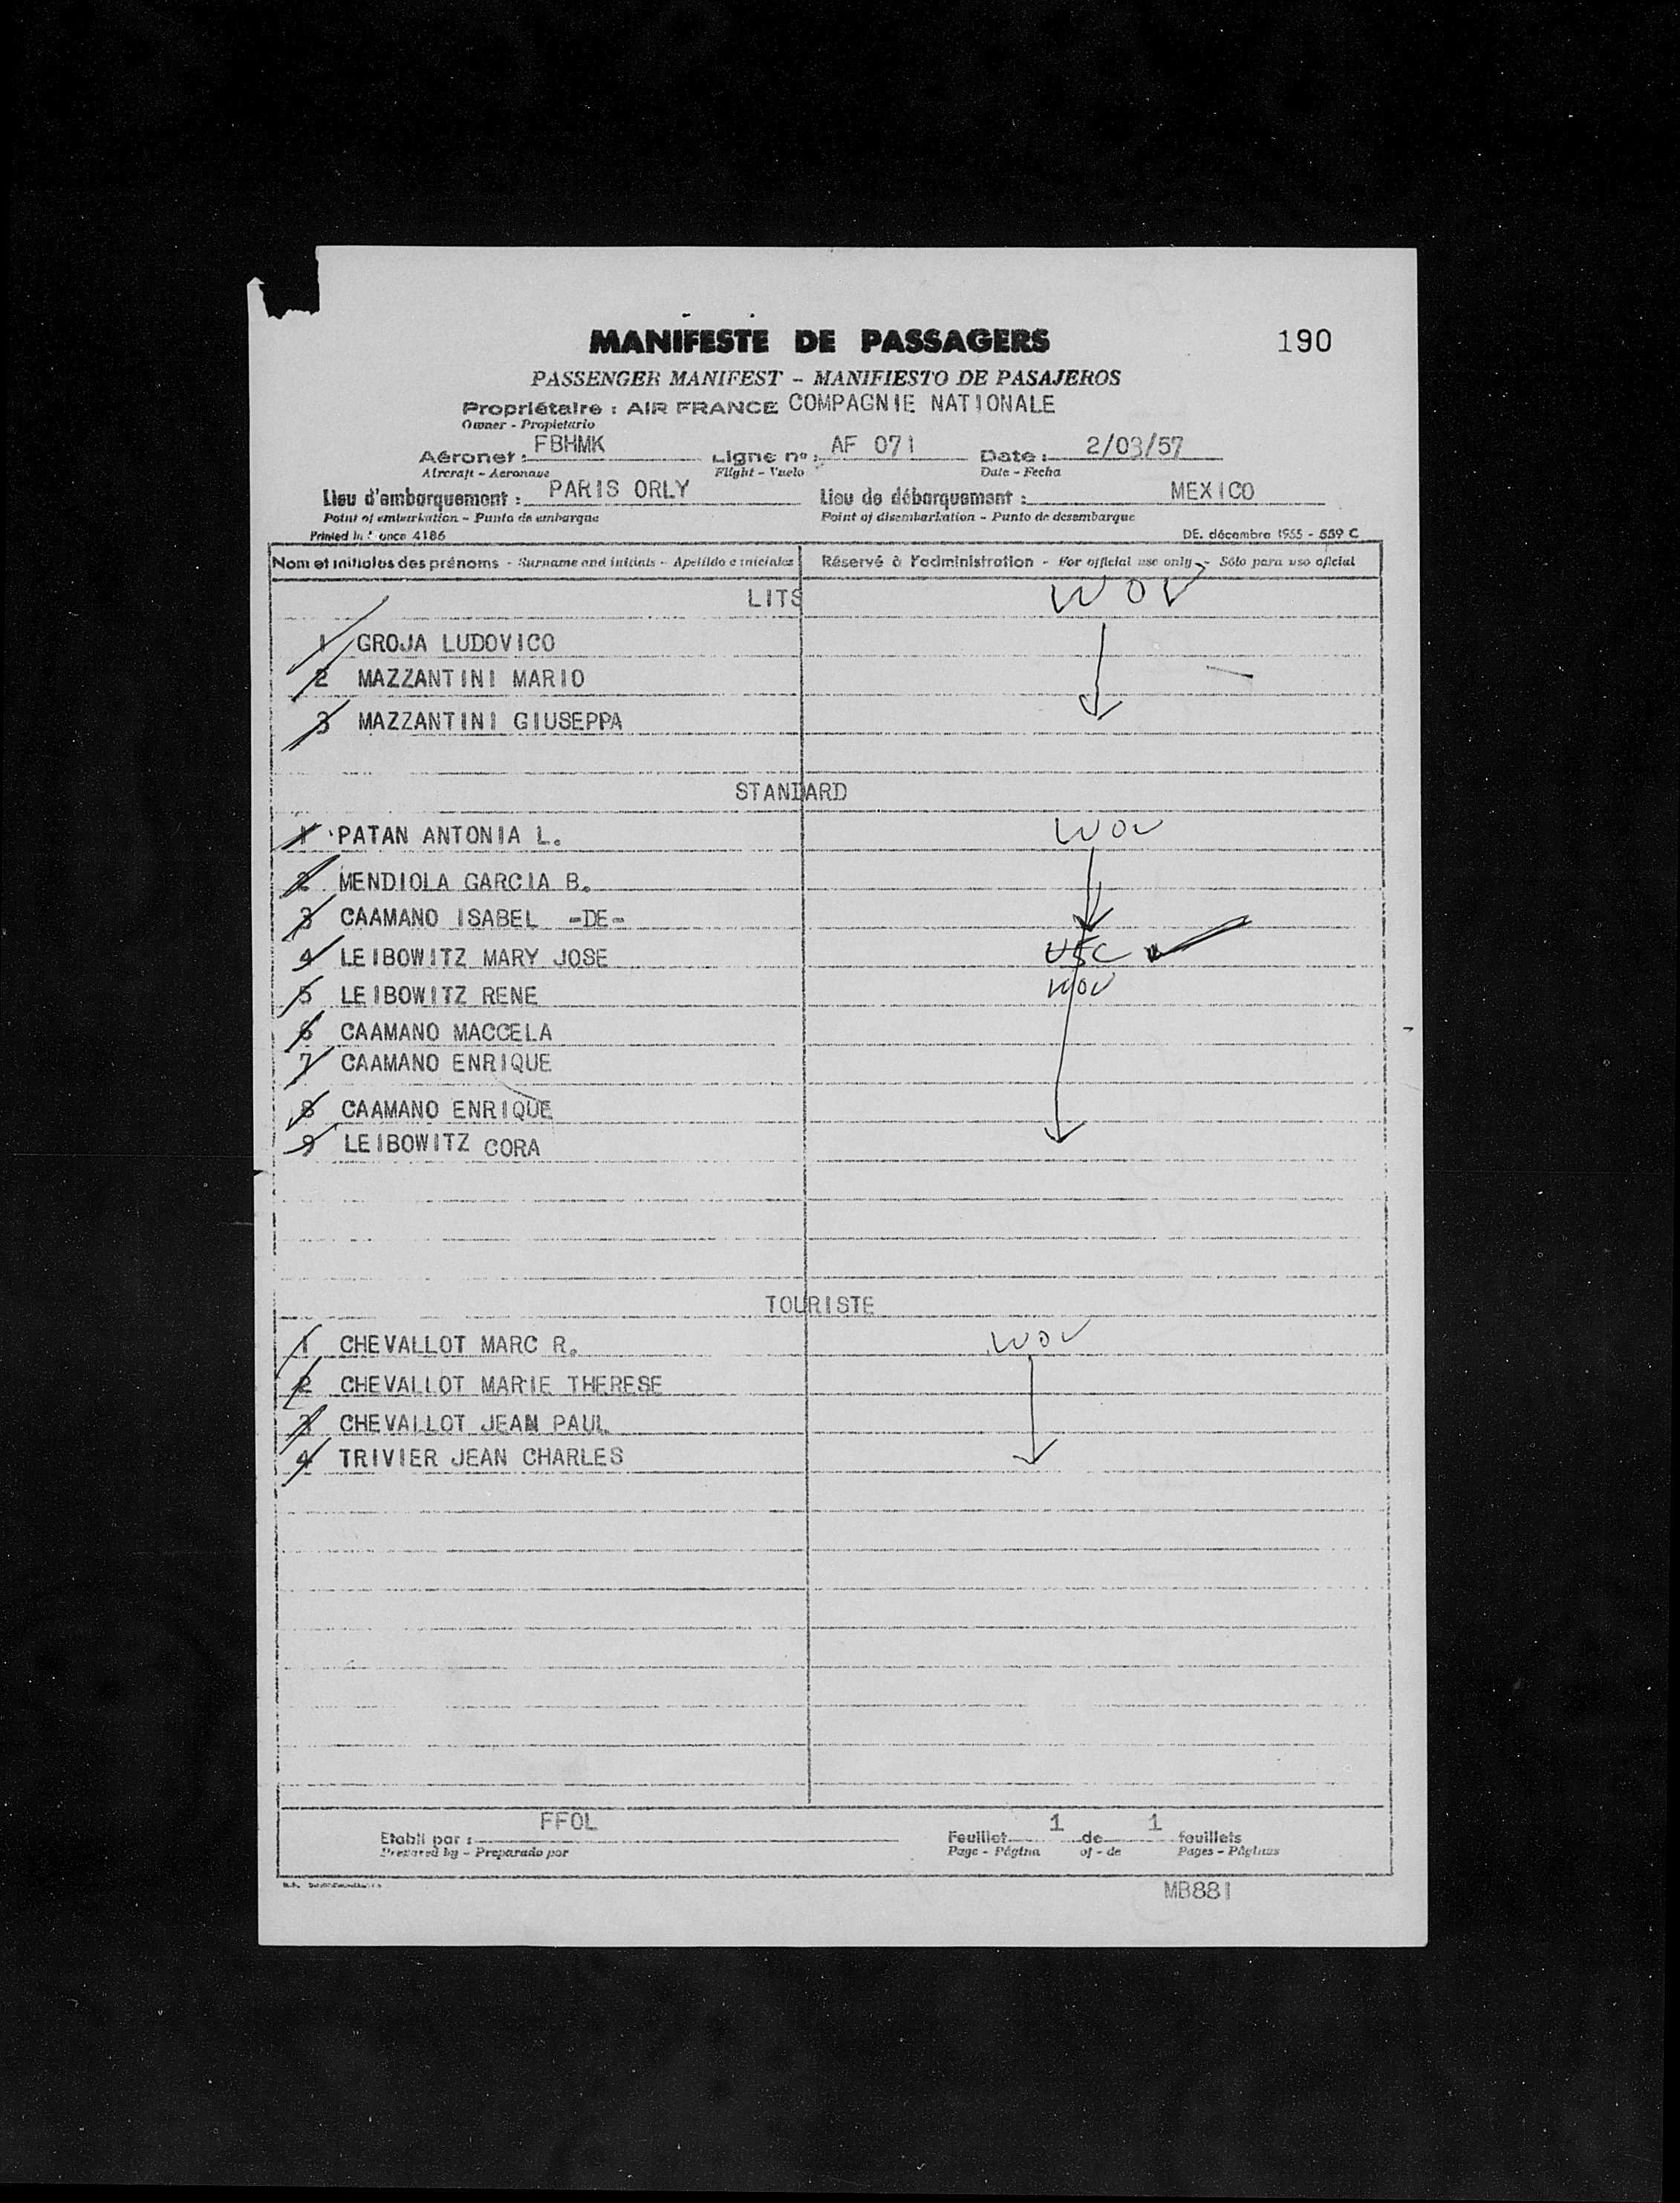 MANIFESTE DE PASSAGERS 190
PASSENGER MANIFEST - MANIFIESTO DE PASAJEROS
Propriétaire : AIR FRANCE COMPAGNIE NATIONALE
Owner - Propietario
Aéronef : FBHMK Ligne nº : AF 071 Date : 2/03/57
Aircraft - Aeronave Flight - Vuelo Date - Fecha
Lieu d'embarquement : PARIS ORLY Lieu de débarquement : MEXICO
Point of embarkation - Punto de embarque Point of disembarkation - Punto de desembarque
Printed in France 4186 DE. décembre 1955 - 559 C
Nom et initiales des prénoms - Surname and initials - Apellido e iniciales Réservé à l'administration - For official use only - Sólo para uso oficial
LITS WOV
1 GROJA LUDOVICO
2 MAZZANTINI MARIO
3 MAZZANTINI GIUSEPPA
STANDARD
1 PATAN ANTONIA L. WOV
2 MENDIOLA GARCIA B.
3 CAAMANO ISABEL -DE-
4 LEIBOWITZ MARY JOSE USC
5 LEIBOWITZ RENE WOV
6 CAAMANO MACCELA
7 CAAMANO ENRIQUE
8 CAAMANO ENRIQUE
9 LEIBOWITZ CORA
TOURISTE
1 CHEVALLOT MARC R. WOV
2 CHEVALLOT MARIE THERESE
3 CHEVALLOT JEAN PAUL
4 TRIVIER JEAN CHARLES
Etabli par : FFOL Feuillet 1 de 1 feuillets
Prepared by - Preparado por Page - Página of - de Pages - Páginas
MB881